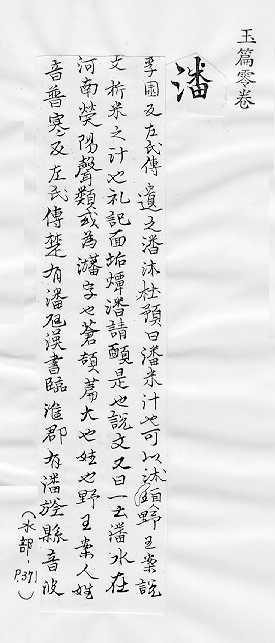 玉篇零卷
潘
孚園反左氏傳遺之潘沐杜預曰潘米汁也可以沐頭野王案說
文析米之汁也礼記面垢燂潘請靧是也說文又曰一云潘水在
河南滎陽聲類或為瀋字也蒼頡篇大也姓也野王案人姓
音普寒反左氏傳楚有潘尫漢書臨淮郡有潘旌縣音波
(水部-P.371)